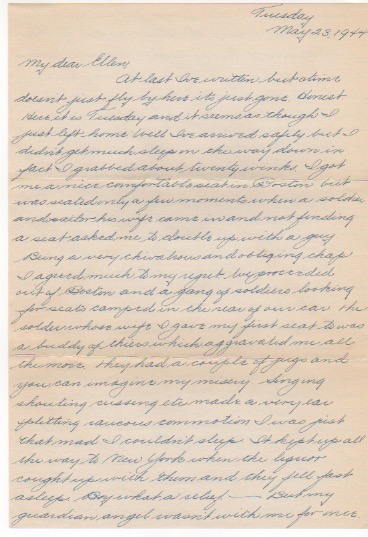 Tuesday
May 23, 1944
My dear Ellen,
At last I've written but a time
doesn't just fly by here its just gone. Honest
Here it is Tuesday and it seems as though I
just left home. Well I've arrived safely but I
didn't get much sleep on the way down in
fact I grabbed about twenty winks. I got
me a nice comfortable seat in Boston but
was seated only a few moments when a soldier
and his wife came in and not finding
a seat asked me to double up with a guy
Being a very chivalrous and obliging chap
I agreed much to my regret. We proceeded
out of Boston and a gang of soldiers looking
for seats camped in the rear of our car. The
soldier whose wife I gave my first seat to was
a buddy of thiers which aggravated me all
the more. They had a couple of jugs and
you can imagine my misery. Singing
shouting cussing etc made a very ear
splitting raucous commotion I was just
that mad I couldn't sleep. It kept up all
the way to New York when the liquor
cought up with them and they fell fast
asleep. Boy what a relief — But my
guardian angel wasn't with me for once